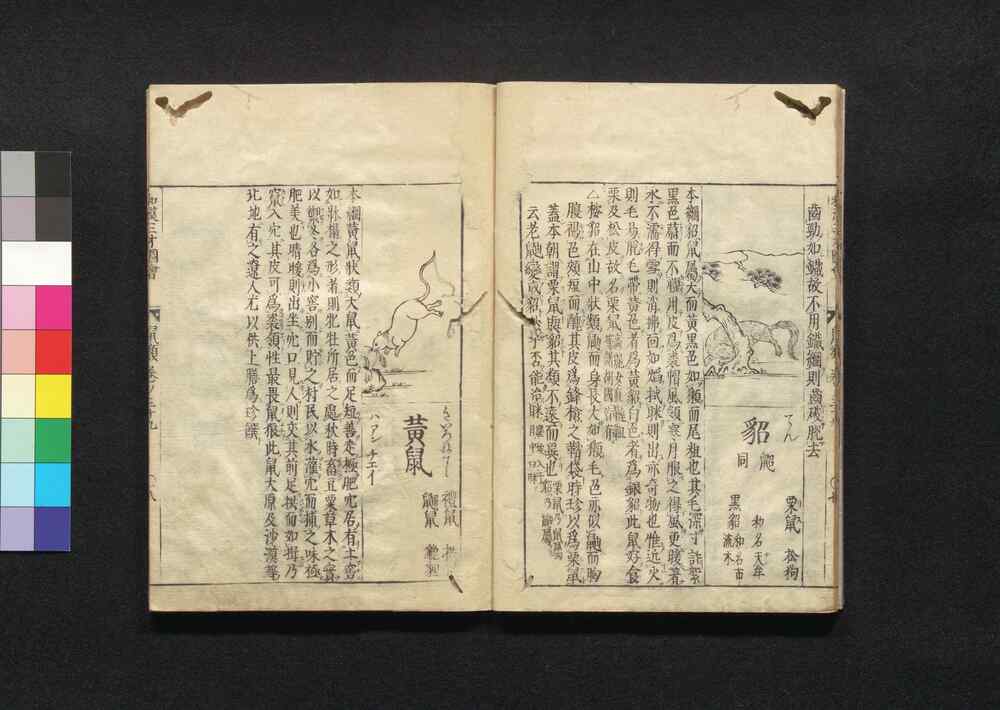 齒勁如鐵故不用鐵網則齒破脫去
てん
貂
鼦
同
栗鼠 松狗
和名天牟
黒貂 和名布
流木
本綱貂鼠屬大而黄黒色如獺而尾粗也其毛深寸許紫
黒色蔚而不耀用皮爲裘帽風領寒月服之得風更暖着
水不濡得雪則消拂面如焔拭眯則出亦奇物也惟近火
則毛易脱毛帶黄色者爲黄貂白色者爲銀貂此鼠好食
栗及松皮故名栗鼠
△按貂在山中狀類鼬而身長大如 毛色亦似鼬而胸
腹褐色頰短而 其皮爲鋒槍之鞘袋時珍以爲栗鼠
蓋本朝謂栗鼠與貂其類不遠而異也
云老鼬變成貂 乎否能治眯
きいろねずみ
黄鼠
ハアン チエイ
禮鼠
鼲鼠
本綱黄鼠狀類大鼠黄色而足短善走極肥穴居有土窖
如牀榻之形者則牝牡所居之處秋時畜豆粟草木之實
以禦冬各爲小窖別而貯之村民以水灌穴而捕之味極
肥美也晴暖則出坐穴口見人則交其前足拱而如揖乃
竄入穴其皮可爲裘領性最畏鼠狼此鼠大原及沙漠等
北地有之遼人尤以供上膳爲珍饌
和漢三才圖會
鼠類 卷之三十九